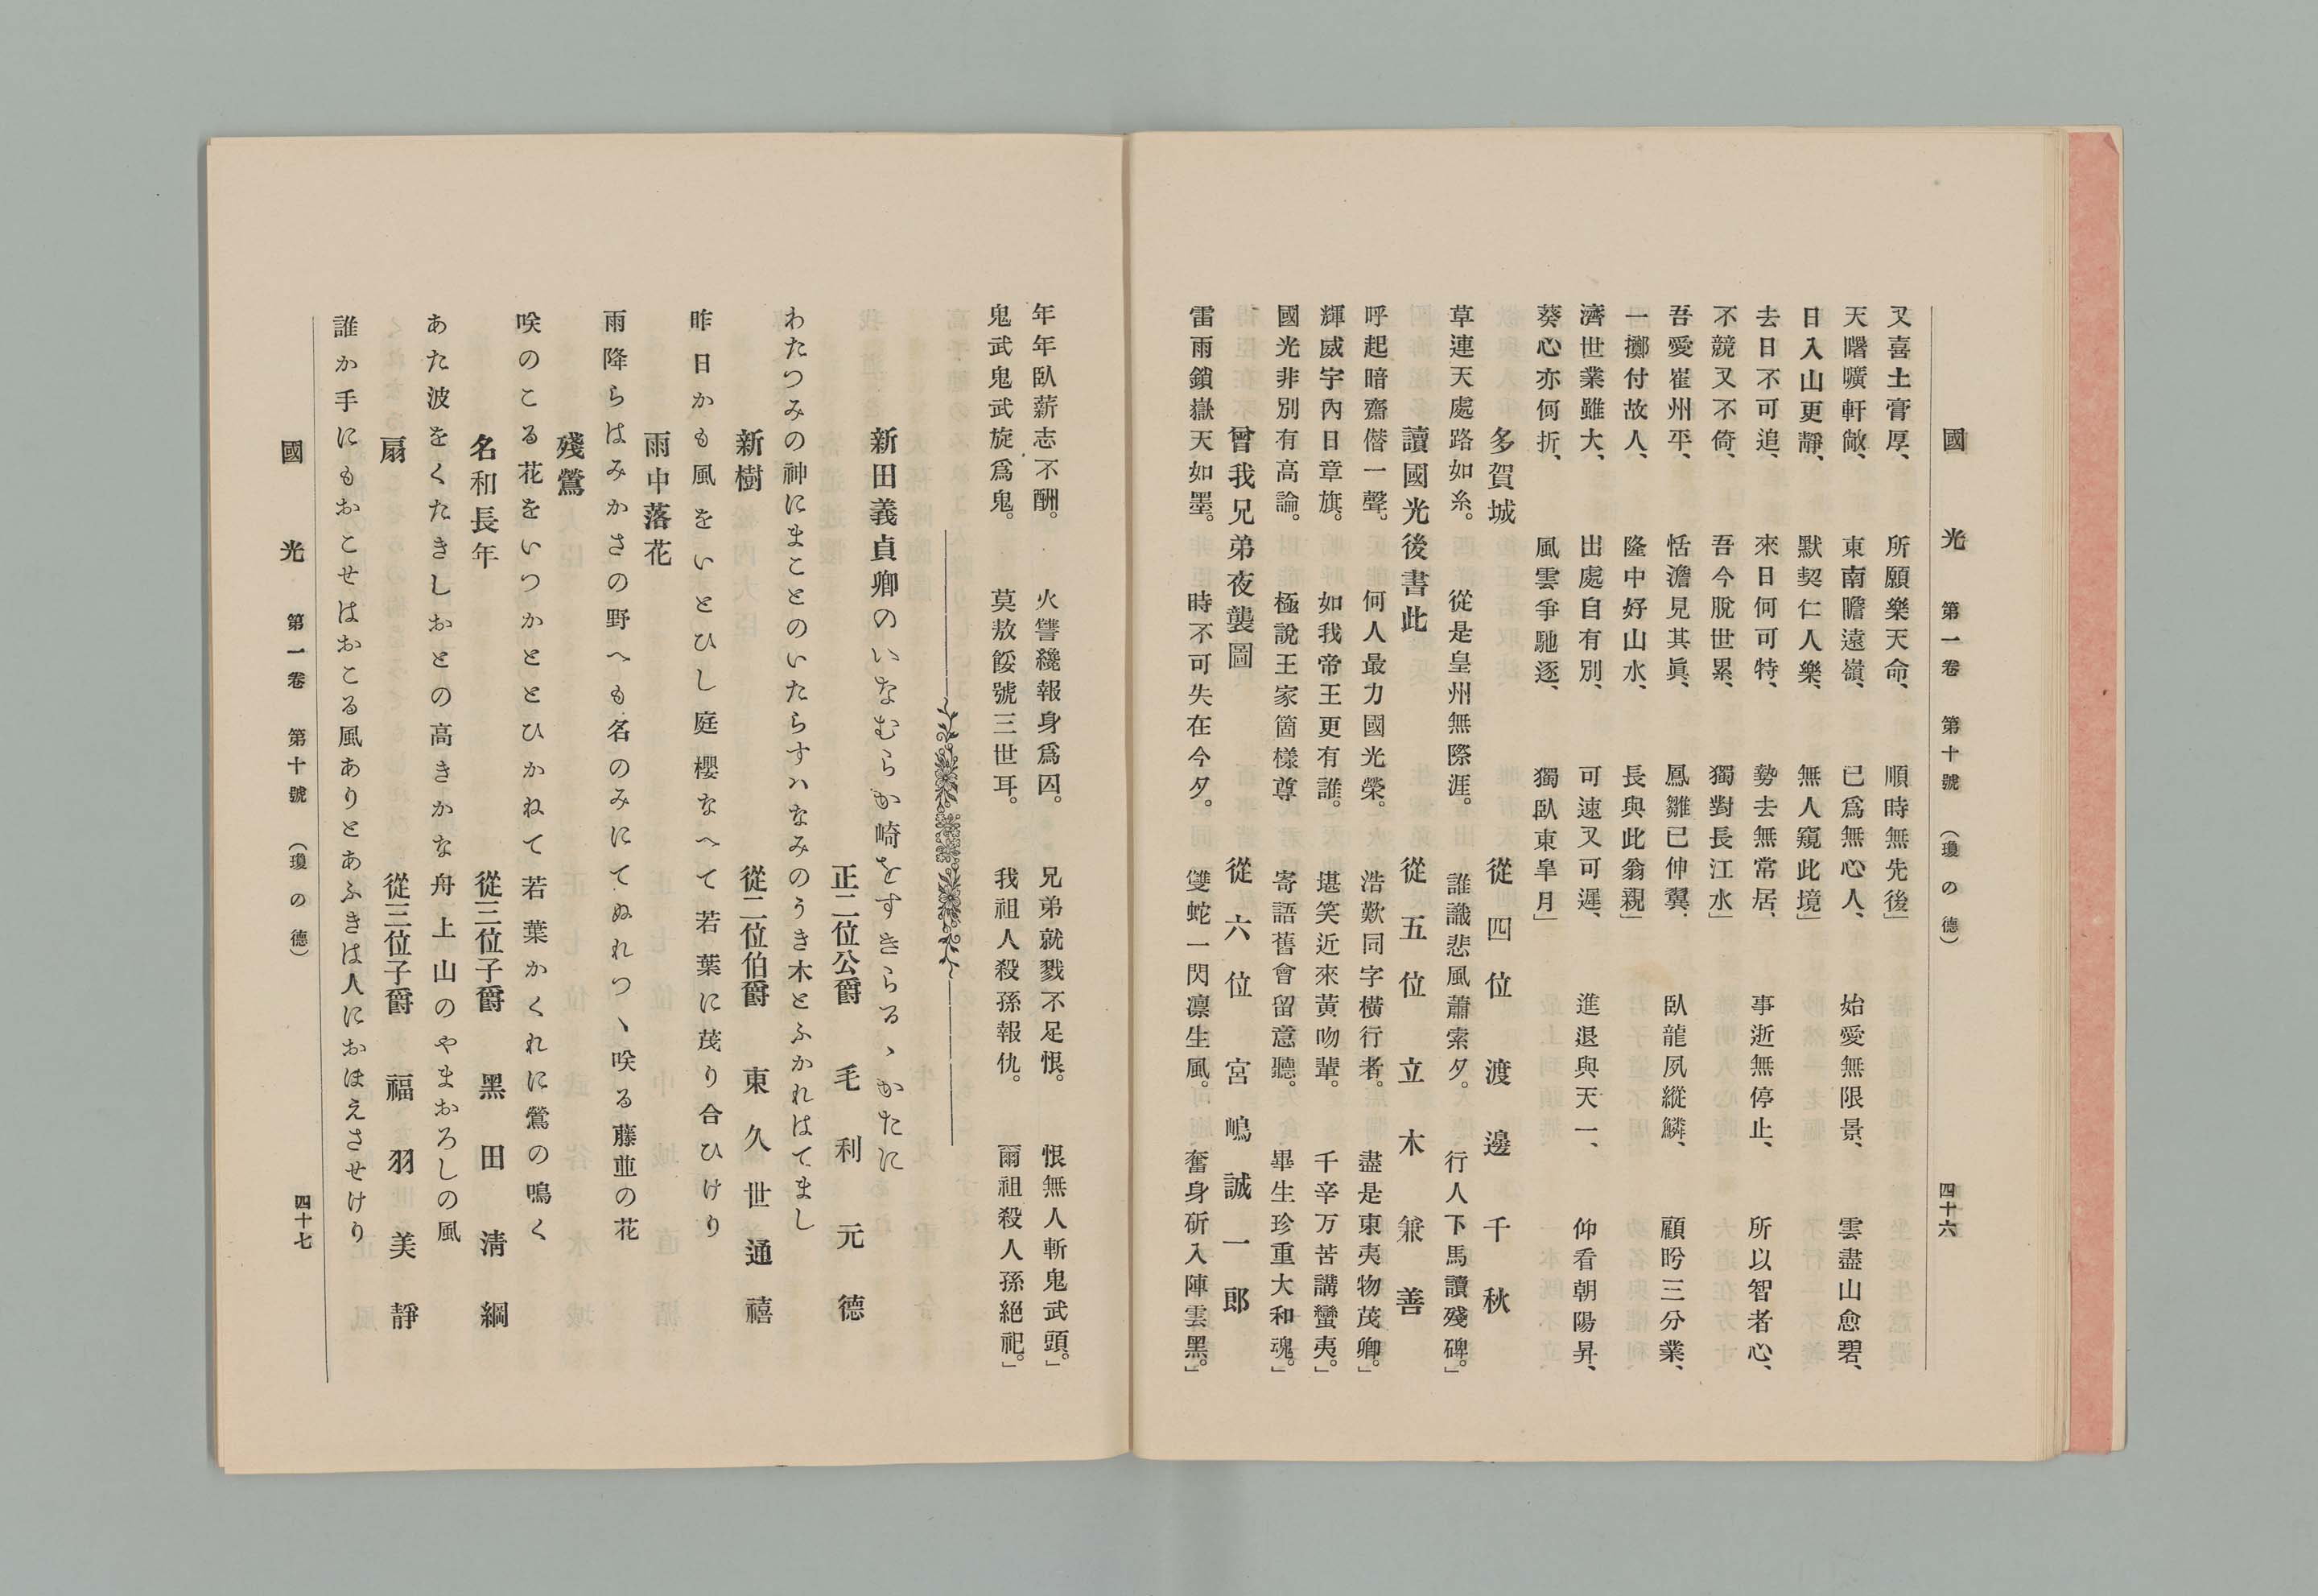 國光 第一卷 第十號 (瓊の德) 四十六
又喜土膏厚、 所願樂天命、 順時無先後」
天曙曠軒敞、 東南瞻遠嶺、 已爲無心人、 始愛無限景、 雲盡山愈碧、
日入山更靜、 默契仁人樂、 無人窺此境」
去日不可追、 來日何可特、 勢去無常居、 事逝無停止、 所以智者心、
不競又不倚、 吾今脫世累、 獨對長江水」
吾愛崔州平、 恬澹見其眞、 鳳雛已伸翼、 臥龍夙縱鱗、 顧盻三分業、
一擲付故人、 隆中好山水、 長與此翁親」
濟世業雖大、 出處自有別、 可速又可遲、 進退與天一、 仰看朝陽昇、
葵心亦何折、 風雲爭馳逐、 獨臥東皐月」
多賀城 從四位 渡邊千秋
草連天處路如糸。 從是皇州無際涯。 誰識悲風蕭索夕。 行人下馬讀殘碑。」
讀國光後書此 從五位 立木兼善
呼起暗齋僣一聲。 何人最力國光榮。 浩歎同字橫行者。 盡是東夷物茂卿。」
輝威宇內日章旗。 如我帝王更有誰。 堪笑近來黃吻輩。 千辛万苦講蠻夷。」
國光非別有高論。 極說王家箇樣尊 寄語舊會留意聽。 畢生珍重大和魂。」
曾我兄弟夜襲圖 從六位 宮嶋誠一郎
雷雨鎖嶽天如墨。 時不可失在今夕。 雙蛇一閃凛生風。 奮身斫入陣雲黑。」
年年臥薪志不酬。 火讐纔報身爲囚。 兄弟就戮不足恨。 恨無人斬鬼武頭。」
鬼武鬼武旋爲鬼。 莫敖餒號三世耳。 我祖人殺孫報仇。 爾祖殺人孫絕祀。」
新田義貞卿のいなむらか崎をすきらるゝかたに
正二位公爵 毛利元德
わたつみの神にまことのいたらすハなみのうき木とふかれはてまし
新樹 從二位伯爵 東久世通禧
昨日かも風をいとひし庭櫻なへて若葉に茂り合ひけり
雨中落花
雨降らはみかさの野へも名のみにてぬれつゝ咲る藤並の花
殘鶯
咲のこる花をいつかととひかねて若葉かくれに鶯の鳴く
名和長年 從三位子爵 黑田淸綱
あた波をくたきしおとの高きかな舟上山のやまおろしの風
扇 從三位子爵 福羽美靜
誰か手にもおこせはおこる風ありとあふきは人におほえさせけり
國光 第一卷 第十號 (瓊の德) 四十七